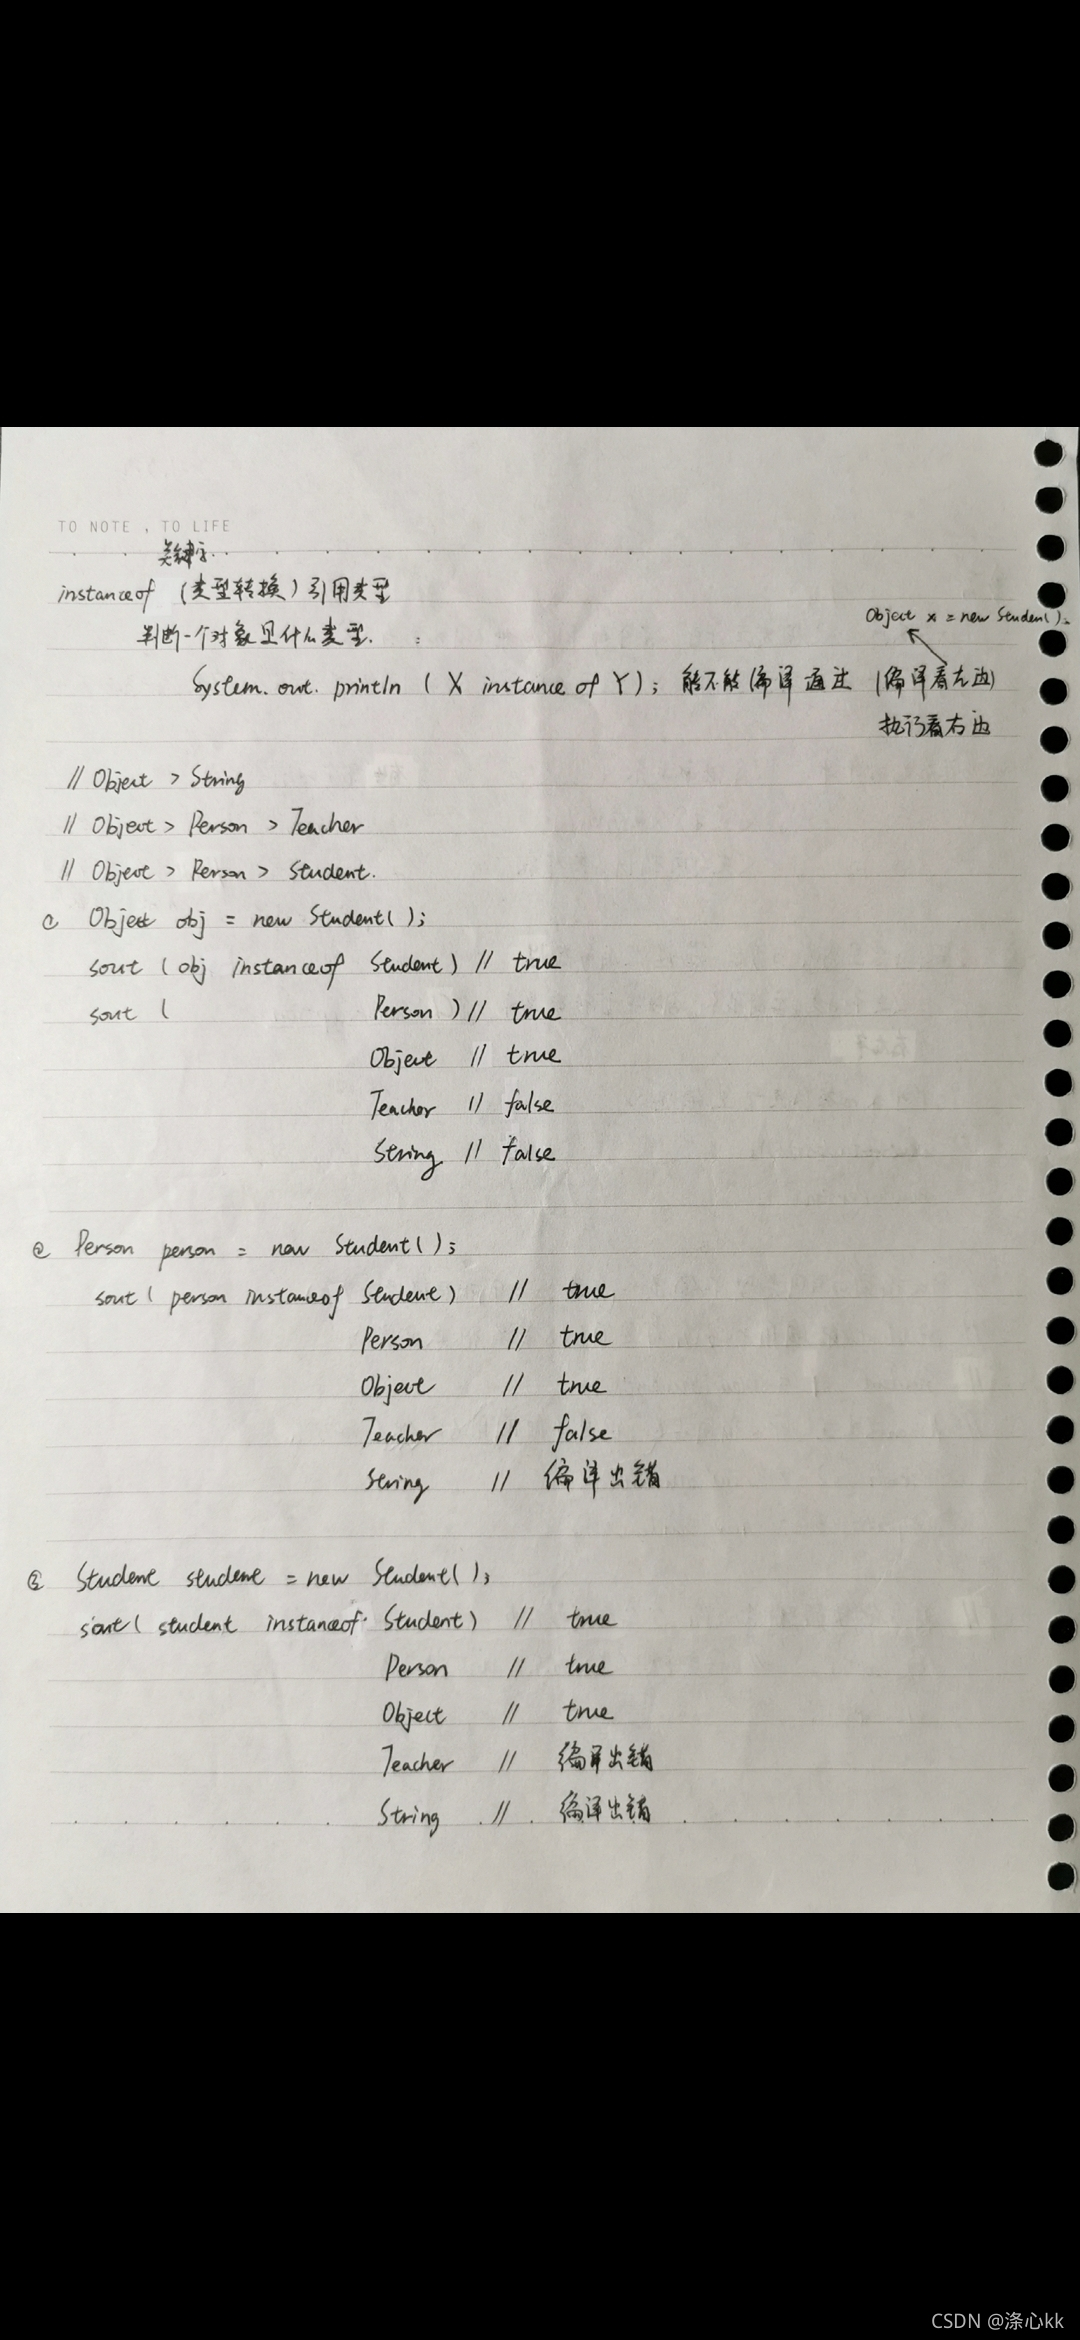 TO NOTE , TO LIFE
关键字
instanceof (类型转换) 引用类型
判断一个对象是什么类型. :
Object x = new Student();
System.out.println ( X instance of Y ); 能不能编译通过 (编译看左边)
执行看右边
// Object > String
// Object > Person > Teacher
// Object > Person > Student.
① Object obj = new Student();
sout ( obj instanceof Student ) // true
sout ( Person ) // true
Object // true
Teacher // false
String // false
② Person person = new Student();
sout ( person instanceof Student ) // true
Person // true
Object // true
Teacher // false
String // 编译出错
③ Student student = new Student();
sout ( student instanceof Student ) // true
Person // true
Object // true
Teacher // 编译出错
String // 编译出错
CSDN @涤心kk